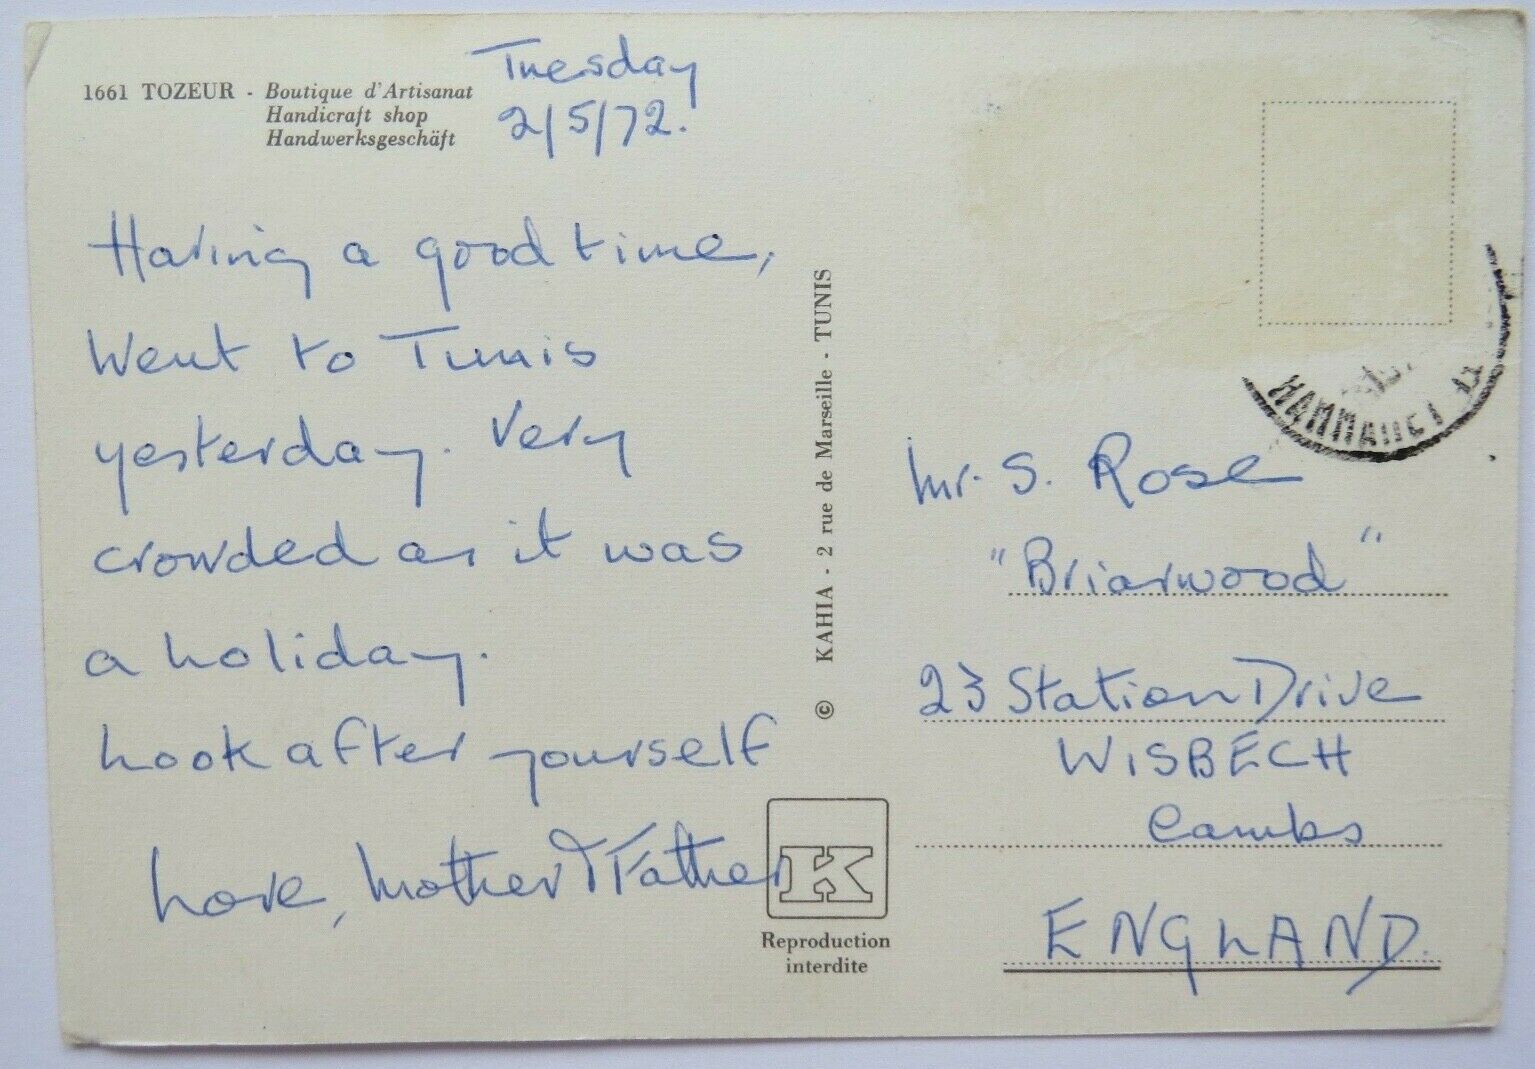 1661 TOZEUR - Boutique d'Artisanat
Handicraft shop
Handwerksgeschäft
Tuesday
2/5/72.
Having a good time,
Went to Tunis
yesterday. Very
crowded as it was
a holiday.
Look after yourself
Love, Mother & Father
© KAHIA - 2 rue de Marseille - TUNIS
K
Reproduction
interdite
HAMMAMET
Mr. S. Rose
"Briarwood"
23 Station Drive
WISBECH
Cambs
ENGLAND.